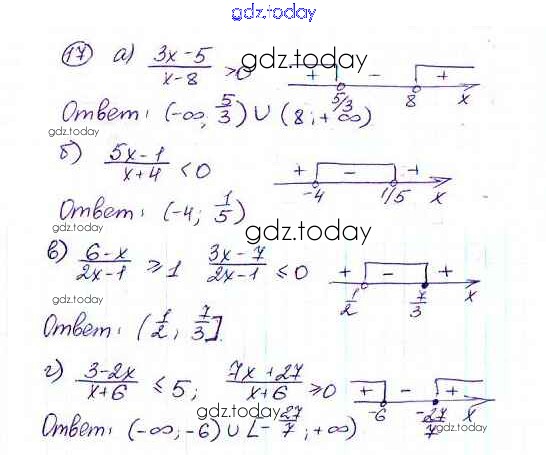 gdz.today
17 а) (3x-5)/(x-8) > 0 + - + 5/3 8 x
gdz.today
Ответ: (-∞; 5/3) ∪ (8; +∞)
gdz.today
б) (5x-1)/(x+4) < 0 + - + -4 1/5 x
Ответ: (-4; 1/5)
gdz.today
gdz.today
в) (6-x)/(2x-1) ⩾ 1 (3x-7)/(2x-1) ⩽ 0 + - + 1/2 7/3 x
gdz.today
Ответ: (1/2; 7/3]
г) (3-2x)/(x+6) ⩽ 5; (7x+27)/(x+6) ⩾ 0 + - + -6 -27/7 x
gdz.today
gdz.today
Ответ: (-∞; -6) ∪ [-27/7; +∞)